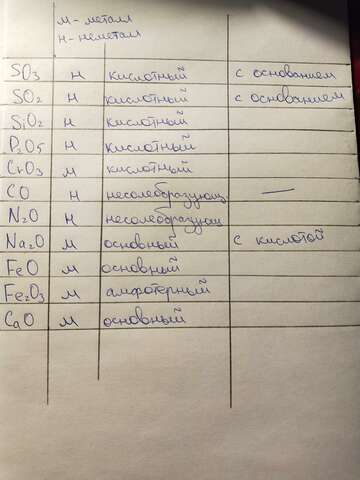 м - металл
н - неметалл
SO₃ н кислотный с основанием
SO₂ н кислотный с основанием
SiO₂ н кислотный
P₂O₅ н кислотный
CrO₃ м кислотный
CO н несолеобразующ —
N₂O н несолеобразующ
Na₂O м основный с кислотой
FeO м основный
Fe₂O₃ м амфотерный
CaO м основный